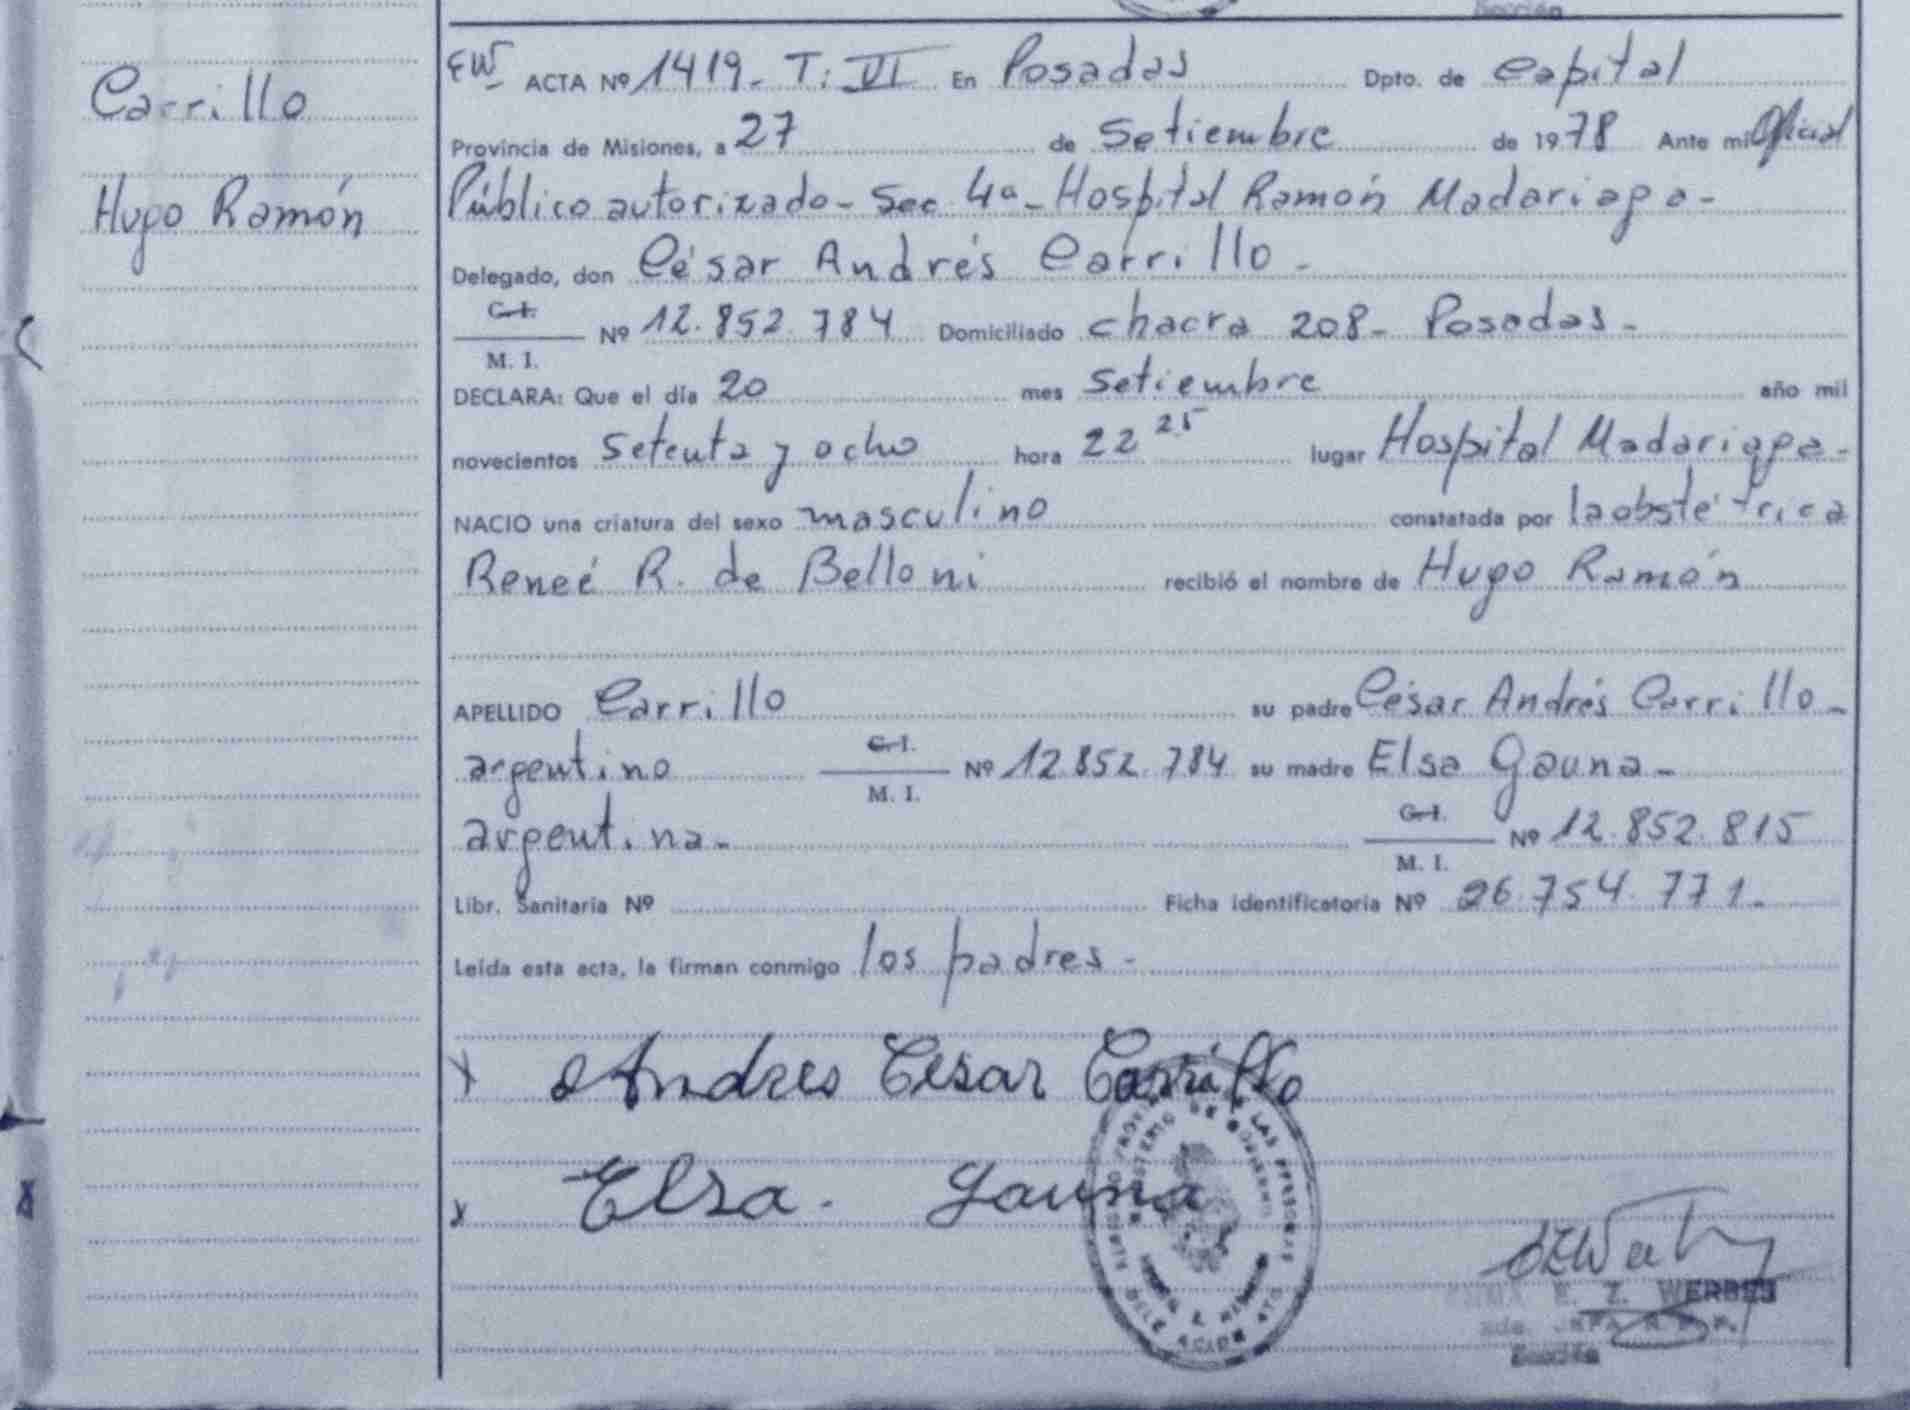 Sección
Carrillo
Hugo Ramón
EW ACTA Nº 1419 - T: VI En Posadas Dpto. de Capital
Provincia de Misiones, a 27 de Setiembre de 1978 Ante mi Oficial
Público autorizado - Sec 4a - Hospital Ramón Madariaga -
Delegado, don César Andrés Carrillo -
C. I.
M. I. Nº 12.852.784 Domiciliado chacra 208 - Posadas -
DECLARA: Que el día 20 mes Setiembre año mil
novecientos Setenta y ocho hora 22 25 lugar Hospital Madariaga -
NACIO una criatura del sexo masculino constatada por la obstétrica
Reneé R. de Belloni recibió el nombre de Hugo Ramón
APELLIDO Carrillo su padre César Andrés Carrillo -
argentino C. I. M. I. Nº 12.852.784 su madre Elsa Gauna -
argentina - C. I. M. I. Nº 12.852.815
Libr. Sanitaria Nº Ficha identificatoria Nº 26.754.771 -
Leída esta acta, la firman conmigo los padres -
x Andres Cesar Carrillo
x Elsa. Gauna
E. Z. WERBES
Sección